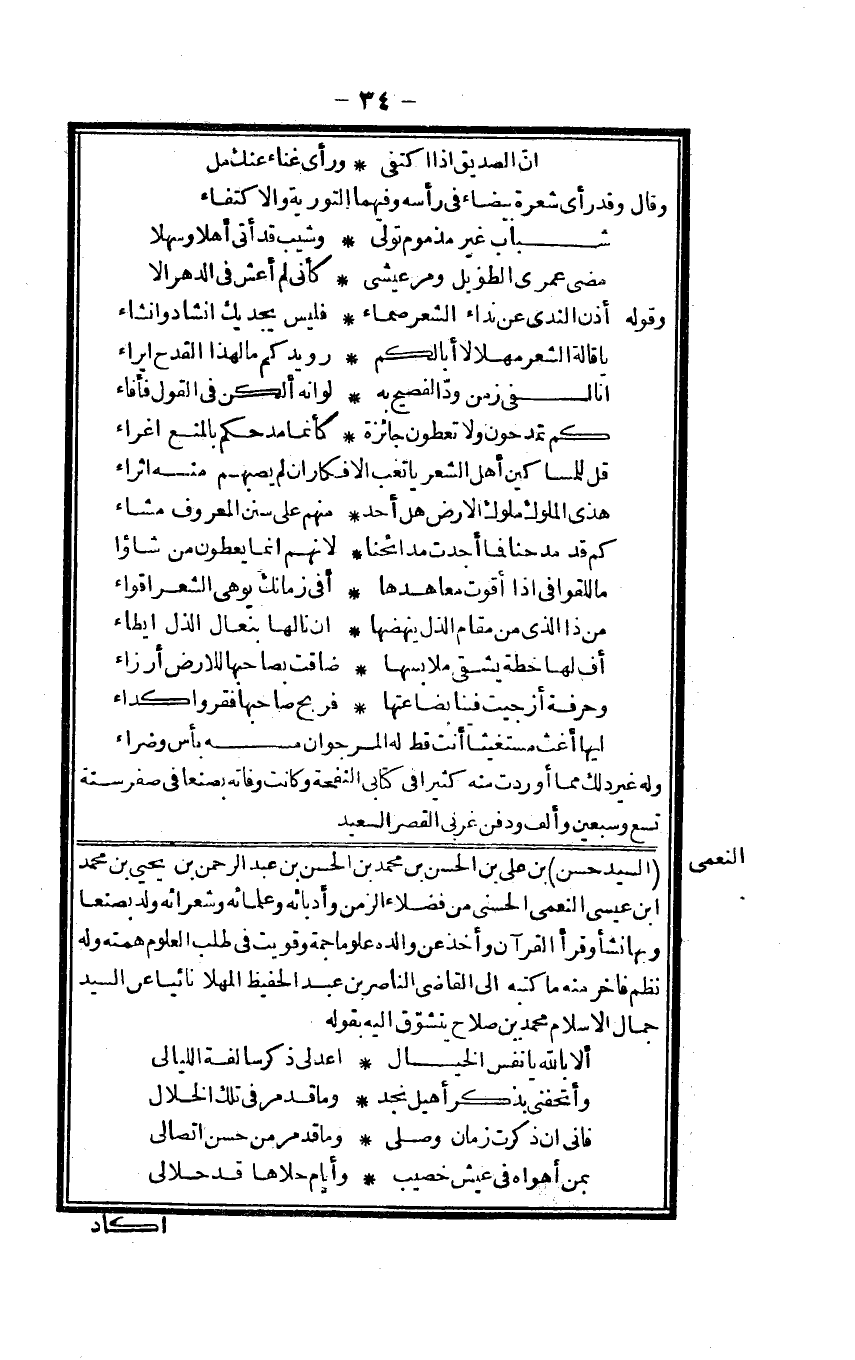 - ٣٤ -
انّ الصديق اذا اكتفى * ورأى غناء عنك مل
وقال وقد رأى شعرة بيضاء فى رأسه وفيهما التورية والاكتفاء
شـباب غير مذموم تولى * وشيب قد أتى أهلا وسهلا
مضى عمرى الطويل ومر عيشى * كأنى لم أعش فى الدهر الا
وقوله أذن الندى عن نداء الشعر صماء * فليس يجديك انشاد وانشاء
يا قالة الشعر مهلا لا أبالكم * رويدكم ما لهذا القدح ايراء
انّا لـفى زمن ودّ الفصيح به * لو انه ألكن فى القول فأفاء
كم تمدحون ولا تعطون جائزة * كأنما مدحكم بالمنع اغراء
قل للمساكين أهل الشعر يا تعب الافكار ان لم يصبهم منه اثراء
هذى الملوك ملوك الارض هل أحد * منهم على سنن المعروف مشاء
كم قد مدحنا فما أجدت مدائحنا * لانهم انما يعطون من شاؤا
ما للقوافى اذا أقوت معاهدها * أفى زمانك يوهى الشعر اقواء
من ذا الذى من مقام الذل ينهضها * ان نالها بنعال الذل ايطاء
أف لها خطة يشقى ملابسها * ضاقت بصاحبها للارض أرزاء
وحرفة أزجيت فينا بضاعتها * فربح صاحبها فقر واكداء
ايها أغث مستغيثا أنت قط له المرجو ان مـسه بأس وضراء
وله غير ذلك مما أوردت منه كثيرا فى كتابى النفحة وكانت وفاته بصنعا فى صفر سنة
تسع وسبعين وألف ودفن غربى القصر السعيد
النعمى
(السيد حسن) بن على بن الحسن بن محمد بن الحسن بن عبد الرحمن بن يحيى بن محمد
ابن عيسى النعمى الحسنى من فضلاء الزمن وأدبائه وعلمائه وشعرائه ولد بصنعا
وبها نشأ وقرأ القرآن وأخذ عن والده علوما جمة وقويت فى طلب العلوم همته وله
نظم فاخر منه ما كتبه الى القاضى الناصر بن عبد الحفيظ المهلا نائبا عن السيد
جمال الاسلام محمد بن صلاح يتشوّق اليه بقوله
ألا بالله يا نفس الخيـال * اعد لى ذكر سالفة الليالى
وأتحفنى بذكر أهيل نجد * وما قد مر فى تلك الخلال
فانى ان ذكرت زمان وصلى * وما قد مر من حسن اتصالى
بمن أهواه فى عيش خصيب * وأيام حلاها قد حلالى
اكاد